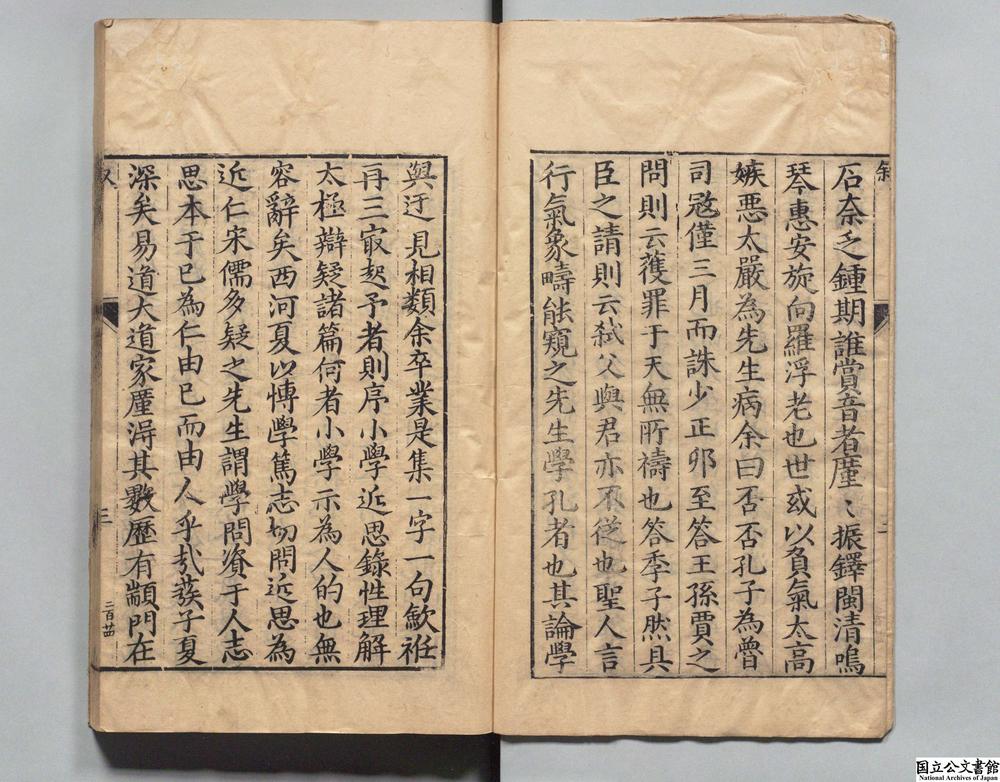 石奈乏鍾期誰賞音者廑〻振鐸閩清鳴
琴惠安旋向羅浮老也世或以負氣太高
嫉惡太嚴為先生病余曰否否孔子為魯
司寇僅三月而誅少正卯至答王孫賈之
問則云獲罪于天無所禱也答季子然具
臣之請則云弑父與君亦不從也聖人言
行氣象疇能窺之先生學孔者也其論學
與迂見相類余卒業是集一字一句歛袵
再三㝡起予者則序小學近思錄性理解
太極辯疑諸篇何者小學示為人的也無
容辭矣西河夏以博學篤志切問近思為
近仁宋儒多疑之先生謂學問資于人志
思本于己為仁由己而由人乎哉葢子夏
深矣易道大道家廑淂其數歷有顓門在
叙
二
三
二百苗
国立公文書館
National Archives of Japan